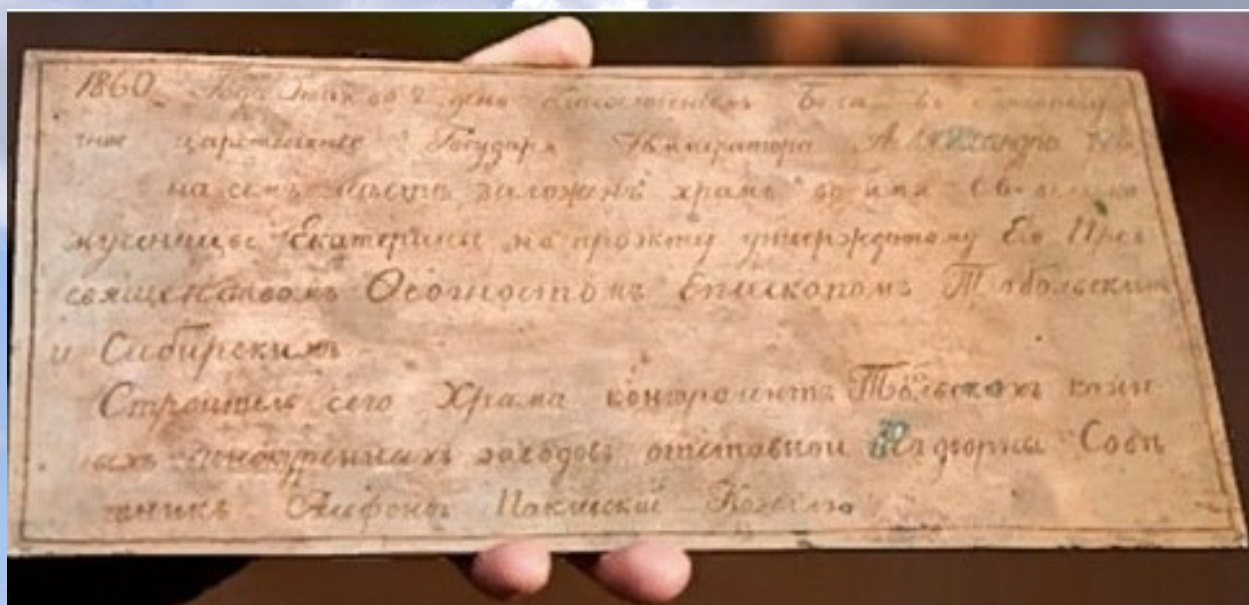 1860 года Июня во 2 день благословениемъ Бога въ
царствованіе Государя Императора Александра
на семъ мѣстѣ заложенъ храмъ во имя Св. велико
мученицы Екатерины по проэкту утвержденому Его Прео
священствомъ Ѳеогностомъ Епископомъ Тобольскимъ
и Сибирскимъ
Строитель сего Храма контрагентъ казен
ныхъ винокуренныхъ заводовъ отставной Надворны Совѣ
тникъ Альфонсъ Козелло